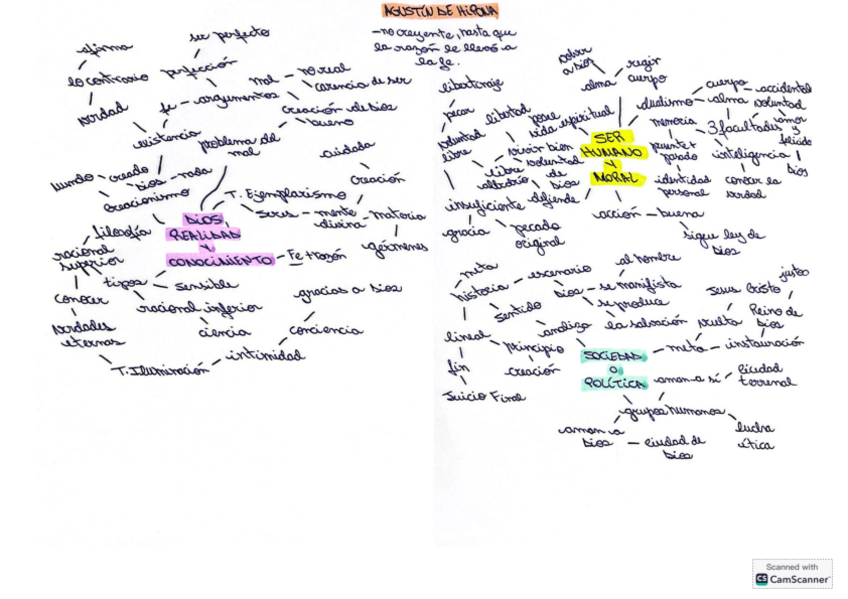 AGUSTÍN DE HIPONA
- no creyente, hasta que
la razón le llevó a
la fe.
ser perfecto
afirma
lo contrario
perfección
verdad
fe - argumentos
mal - no real
carencia de ser
creación de dios
bueno
existencia
problema del
mal
mundo - creado
dios - nada
creacionismo
cuidada
creación
T. Ejemplarismo
seres - mente
divina
materia
gérmenes
DIOS
REALIDAD
Y
CONOCIMIENTO
Fe + razón
filosofía
racional
superior
tipos
sensible
conocer
racional inferior
gracias a dios
verdades
eternas
ciencia
conciencia
T. Iluminación - intimidad
libertinaje
pecar
voluntad
libre
libertad
vida espiritual
vivir bien
libre
albedrío
voluntad
de
dios
insuficiente
defiende
gracia
pecado
original
a dios
regir
cuerpo
alma
SER
HUMANO
Y
MORAL
dualismo
cuerpo
accidental
alma
voluntad
memoria
3 facultades
amor
y
inteligencia
dios
pasado
identidad
personal
conocer la
verdad
acción - buena
sigue ley de
dios
meta
historia
escenario
al hombre
dios - se manifiesta
se produce
la salvación
sentido
analiza
lineal
principio
creación
fin
Juicio Final
SOCIEDAD
O
POLÍTICA
Jesus Cristo
justos
vuelta
Reino de
dios
meta - instauración
aman a sí
ciudad
terrenal
grupos humanos
aman a
dios
ciudad de
dios
lucha
ética
Scanned with
CS CamScanner